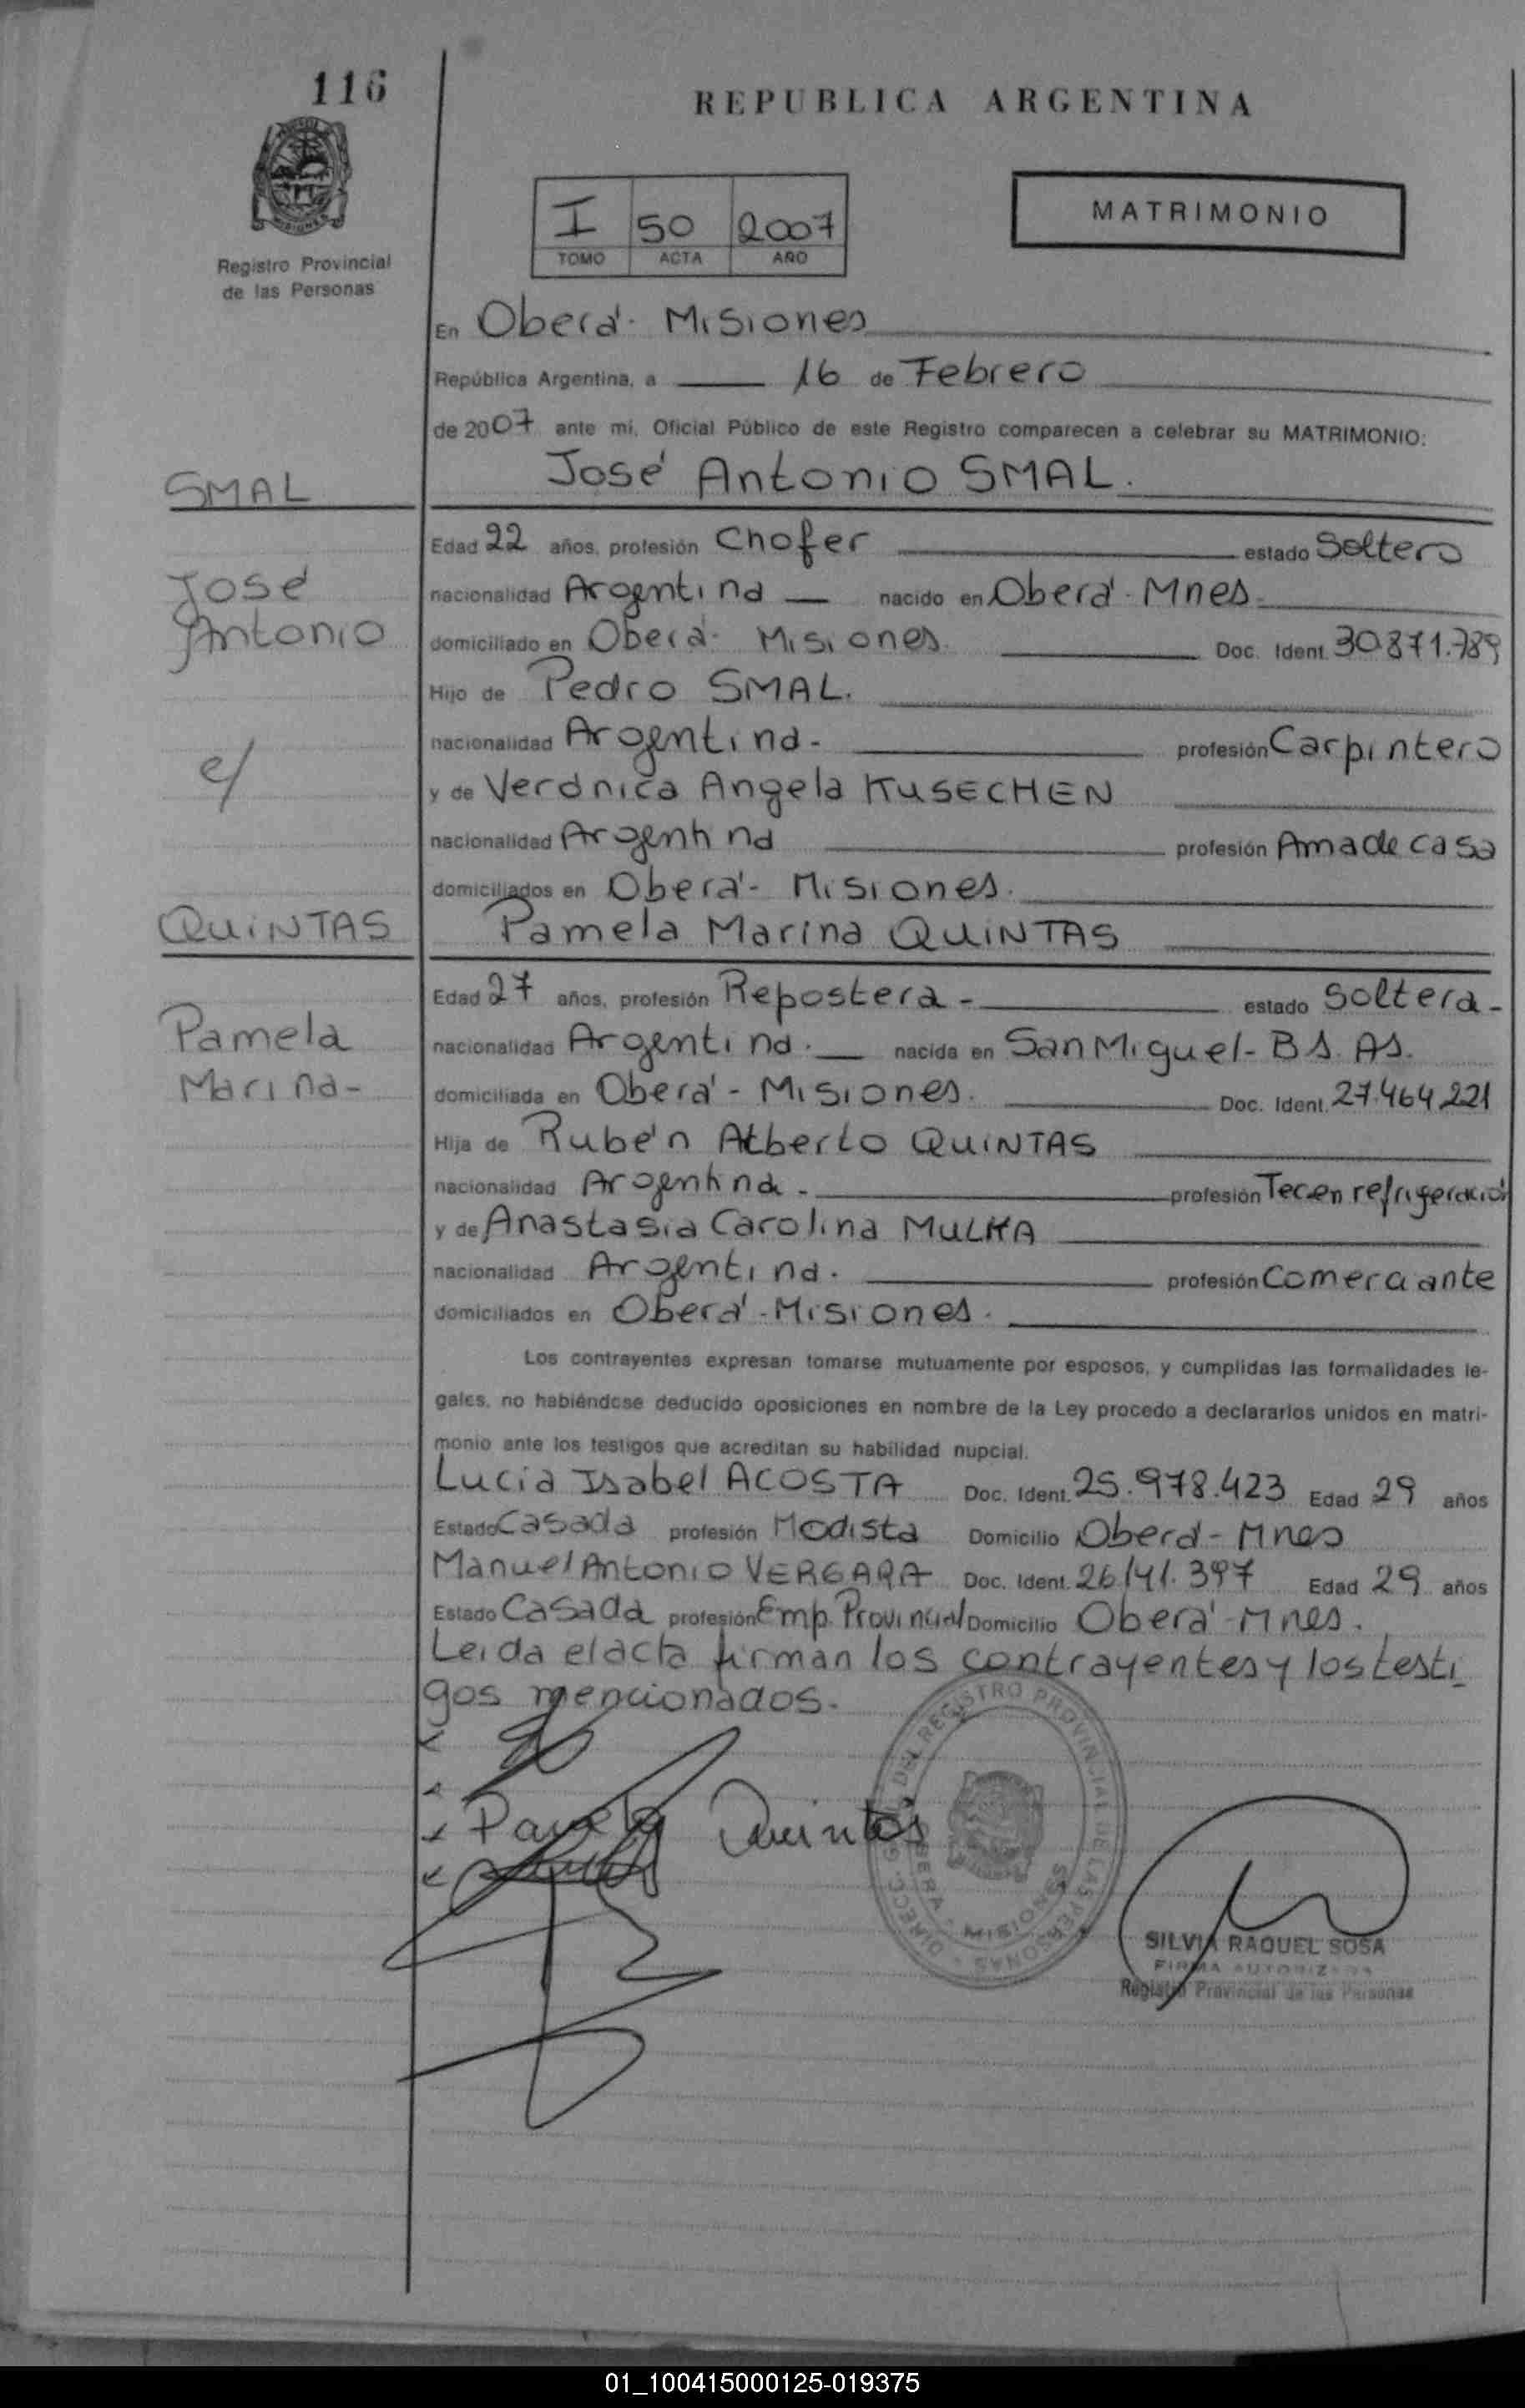 116
REPUBLICA ARGENTINA
I 50 2007
TOMO ACTA AÑO
MATRIMONIO
Registro Provincial
de las Personas
En Oberá - Misiones
República Argentina, a 16 de Febrero
de 2007 ante mí, Oficial Público de este Registro comparecen a celebrar su MATRIMONIO:
José Antonio SMAL.
SMAL
Edad 22 años, profesión Chofer estado Soltero
José
nacionalidad Argentina nacido en Oberá - Mnes.
Antonio
domiciliado en Oberá - Misiones. Doc. Ident. 30.871.789
Hijo de Pedro SMAL.
nacionalidad Argentina - profesión Carpintero
c/
y de Verónica Angela KUSECHEN
nacionalidad Argentina profesión Ama de casa
domiciliados en Oberá - Misiones.
QUINTAS
Pamela Marina QUINTAS
Edad 27 años, profesión Repostera - estado Soltera -
Pamela
nacionalidad Argentina. nacida en San Miguel - BS. AS.
Marina -
domiciliada en Oberá - Misiones. Doc. Ident. 27.464.221
Hija de Rubén Alberto QUINTAS
nacionalidad Argentina - profesión Tec. en refrigeración
y de Anastasia Carolina MULKA
nacionalidad Argentina. profesión Comerciante
domiciliados en Oberá - Misiones.
Los contrayentes expresan tomarse mutuamente por esposos, y cumplidas las formalidades le-
gales, no habiéndose deducido oposiciones en nombre de la Ley procedo a declararlos unidos en matri-
monio ante los testigos que acreditan su habilidad nupcial.
Lucia Isabel ACOSTA Doc. Ident. 25.978.423 Edad 29 años
Estado Casada profesión Modista Domicilio Oberá - Mnes
Manuel Antonio VERGARA Doc. Ident. 26.141.397 Edad 29 años
Estado Casada profesión Emp. Provincial Domicilio Oberá - Mnes.
Leida el acta firman los contrayentes y los testi
gos mencionados.
Pamela Quintas
DIRECC. GRAL. DEL REGISTRO PROVINCIAL DE LAS PERSONAS
OBERA - MISIONES
SILVIA RAQUEL SOSA
FIRMA AUTORIZADA
Registro Provincial de las Personas
01_100415000125-019375